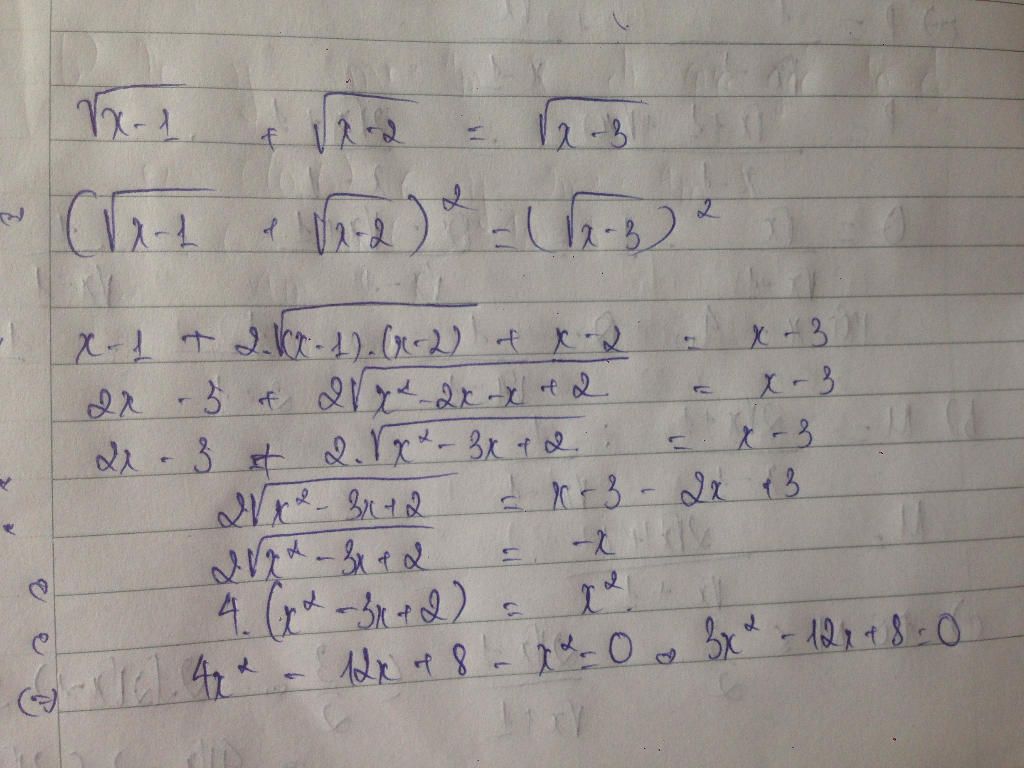 √x-1 + √x-2 = √x-3
(√x-1 + √x-2)² = (√x-3)²
x-1 + 2.√(x-1).(x-2) + x-2 = x-3
2x - 3 + 2√x²-2x-x+2 = x-3
2x - 3 + 2.√x²-3x+2 = x-3
2√x²-3x+2 = x-3 - 2x +3
2√x²-3x+2 = -x
4.(x²-3x+2) = x².
(=) 4x² - 12x + 8 - x² = 0 ⇔ 3x² - 12x + 8 = 0